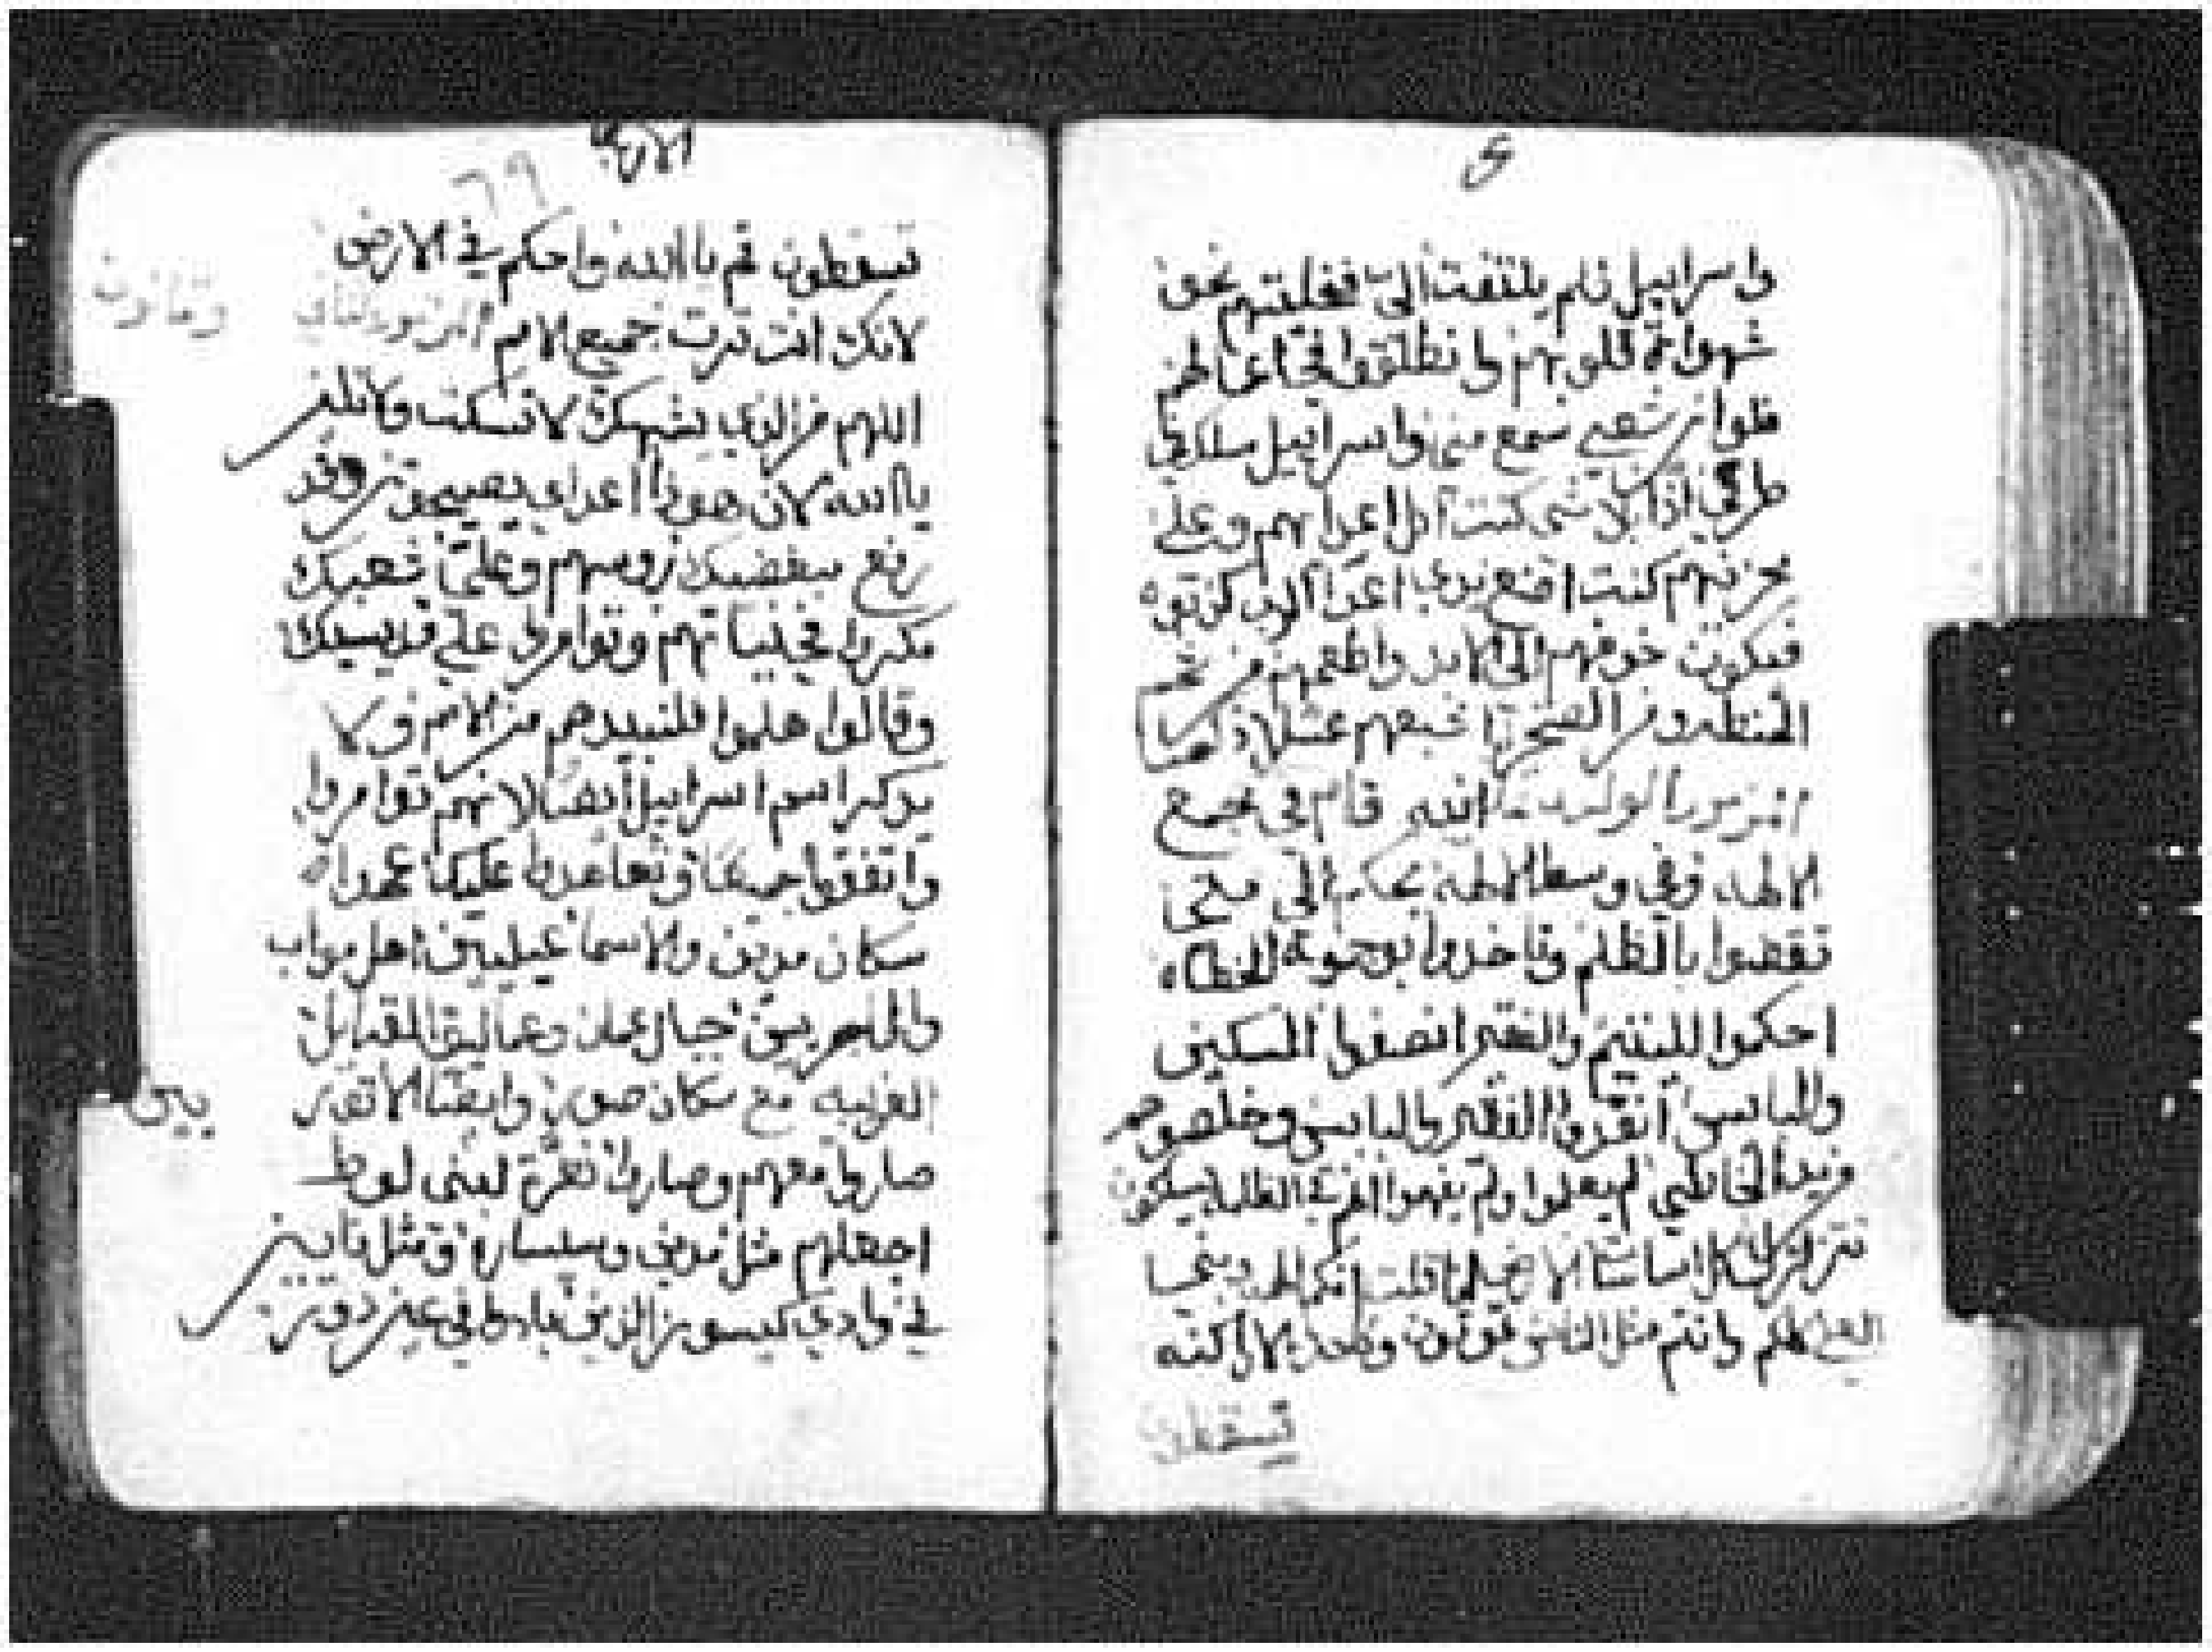 واسراييل فلم يلتفت الي ففعلتهم نحو
شهوات قلوبهم وانطلقوا في اعمالهم
فلوان شعبي سمع مني واسراييل سلك في
طرقي اذا بلا شي كنت اذل اعداهم وعلي
محزنهم كنت اضع يدي اعدا الرب كذبوه
فيكون خوفهم الي الابد واطعمهم من شحم
الحنطه ومن الصخرة اشبعهم عسلا
المزمور الله قام في مجمع
الالهه وفي وسط الالهه يحكم الي متي
تقضوا بالظلم وتاخدوا بوجوه الخطاه
احكموا لليتيم والفقير انصفوا المسكين
والبايس انقدوا الفقير والبايس وخلصوه
من يد الخاطي لم يعلموا ولم يفهموا انهم في الظلمه يسلكون
تتزلزل كل اساسات الارض انا قلت انكم الهه وبنيا
العلي كلكم وانتم مثل الناس تموتون وكاحد الاراكنه
تسقطون
الاربعا
٦٩
تسقطون قم يا الله واحكم في الارض
لانك انت ترت جميع الامم المزمور
وثمانون
اللهم من الذي يشبهك لا تسكت ولا تلغي
يا الله لان هوذا اعداك يصيحون وقد
رفع مبغضيك روسهم وعلي شعبك
مكروا في نياتهم وتوامروا علي قديسيك
وقالوا هلموا فلنبيدهم من الامم ولا
يدكر اسم اسراييل ايضا لانهم توامروا
واتفقوا جميعا وتعاهدوا عليك عهدا
سكان مدين والاسماعيليين اهل مواب
والهاجريين جبال عمان وعماليق القبايل
الغريبه مع سكان صور وايضا الاتور
يين
صاروا معهم وصاروا نصرة لبني لوط
اجعلهم مثل مدين وسيسارا ومثل يابين
في وادي كيسون الذين بادوا في عين دور